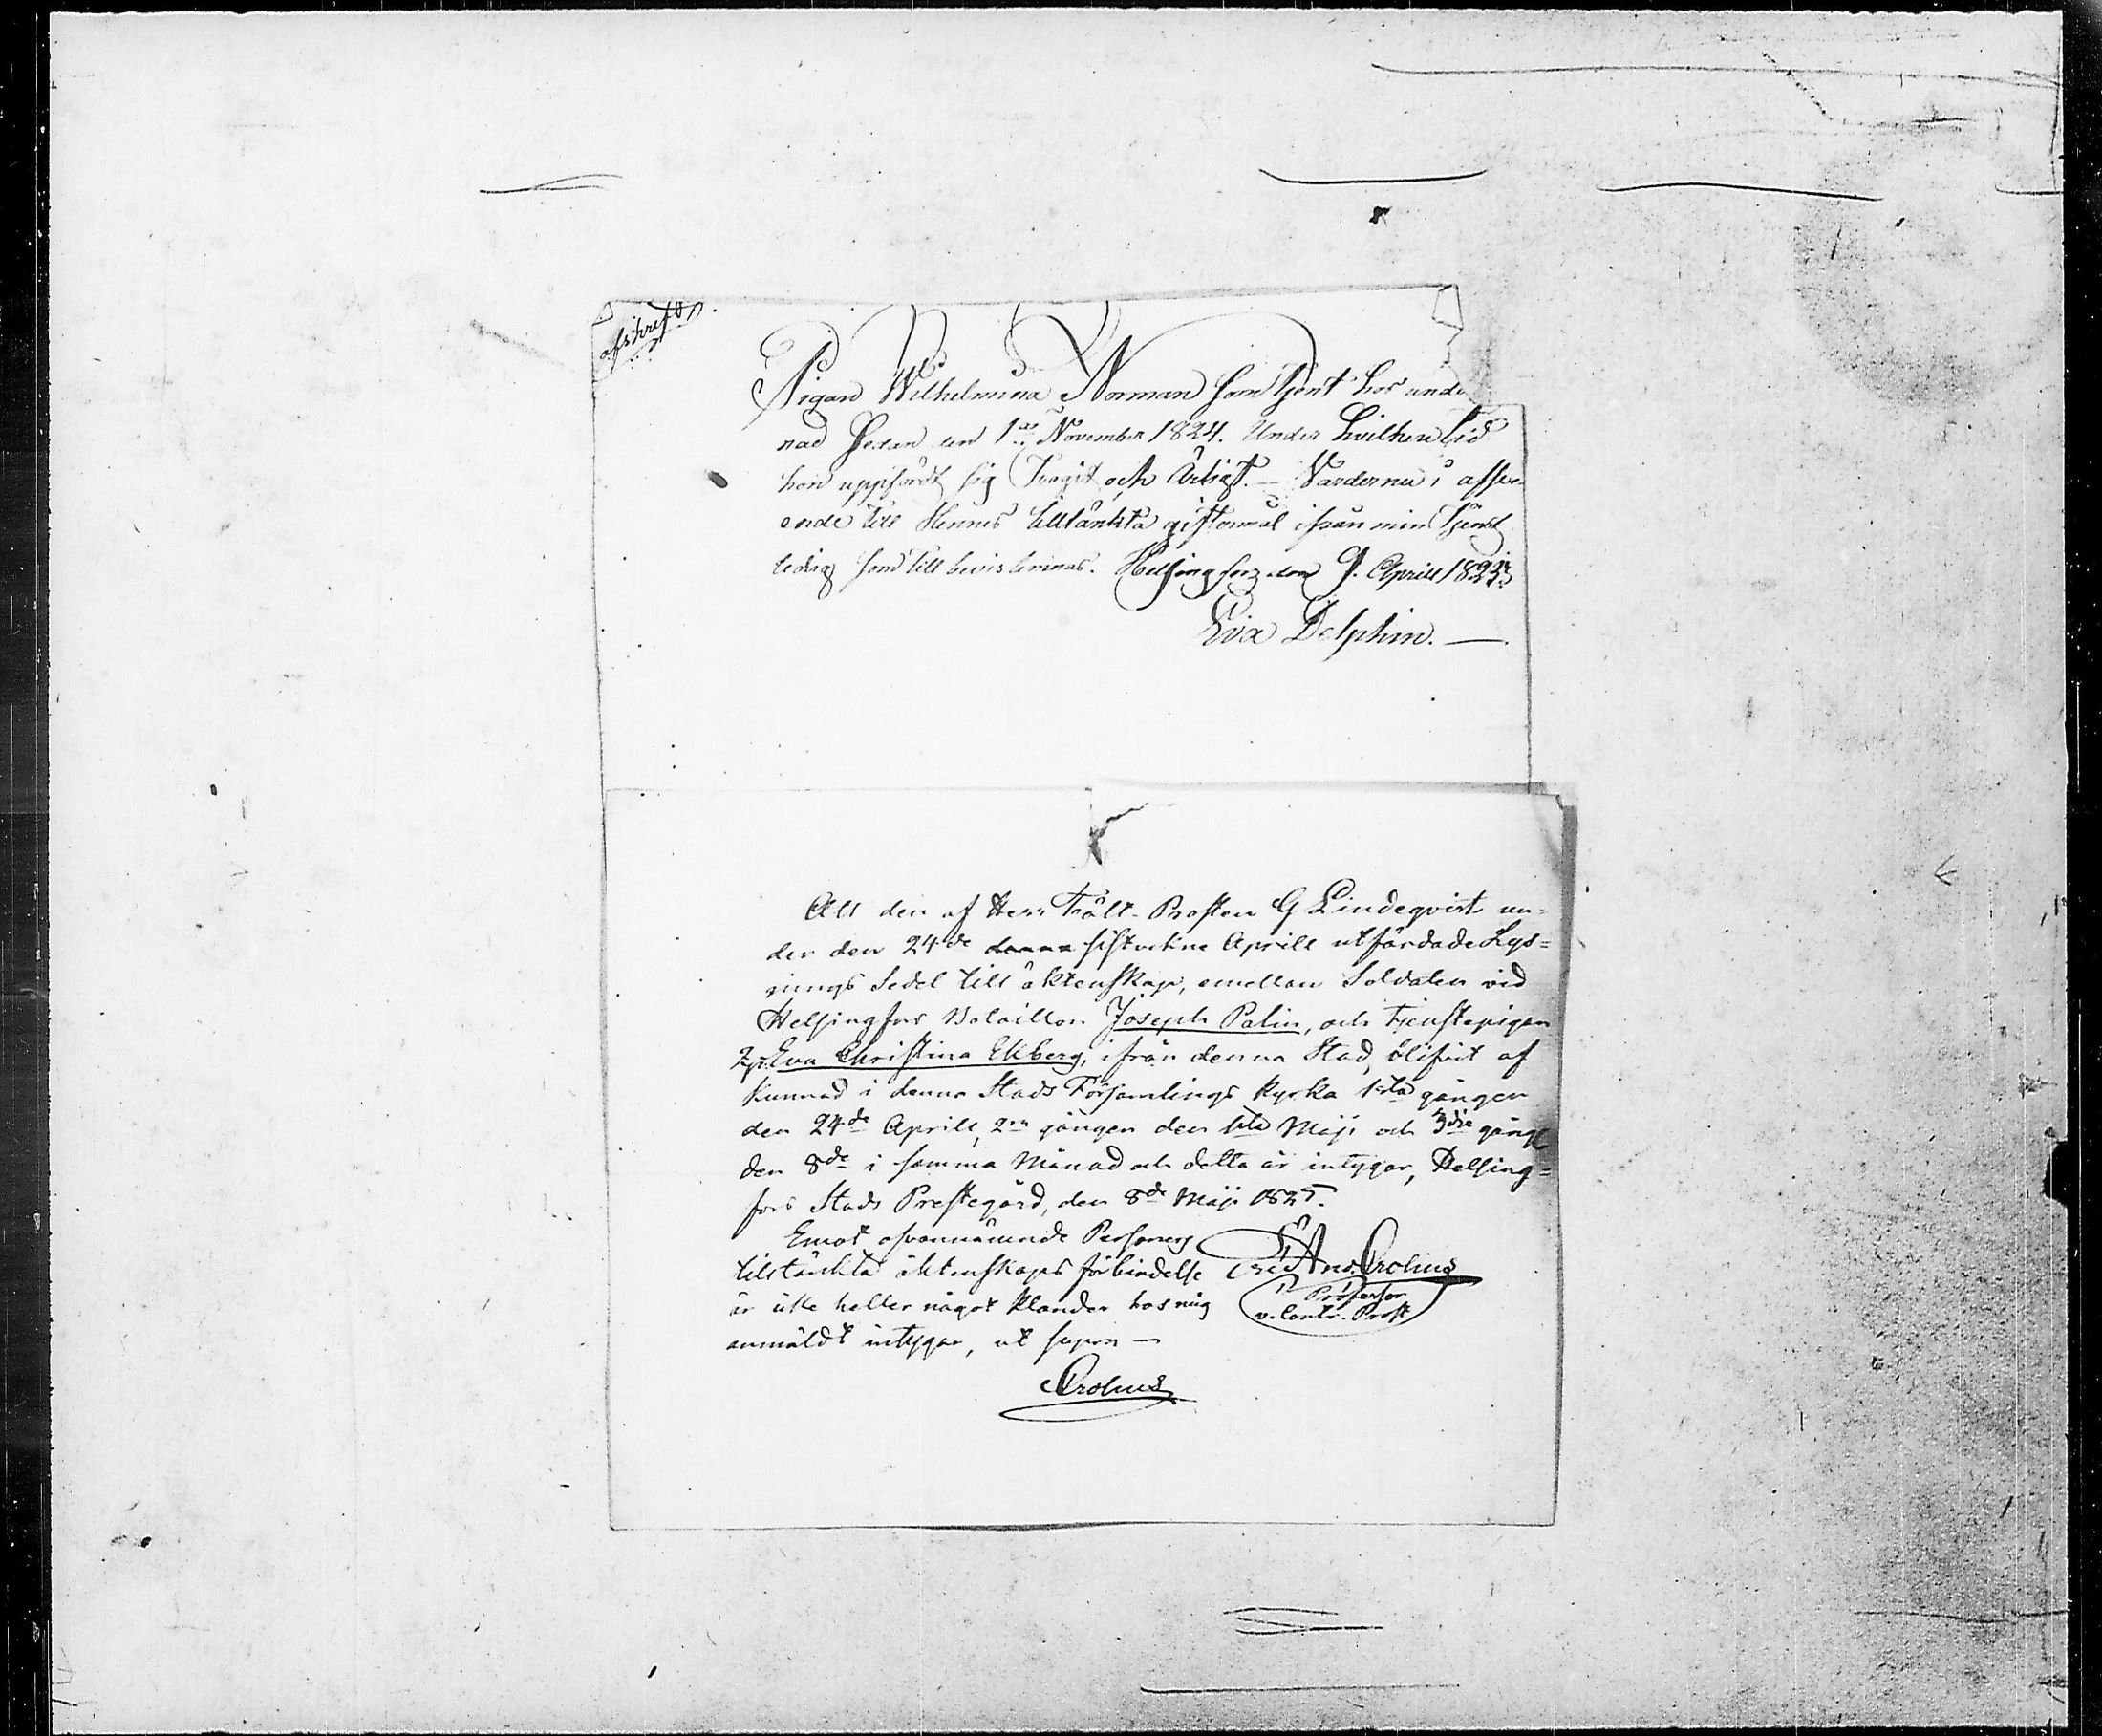 afskrift
Pigan Wilhelmina Norman som tjent hos under
nad sedan den 1sta November 1824. Under hvilken tid
hon uppfördt sig Trogit och Ärligt. — Varder nu i afse-
ende till Hennes tilltänkta giftermål ifrån min Tjenst
ledig som till bevis lemnas. Helsingfors den 9. Aprill 1825
Eva Delphin. —
Att den af Herr Fält-Prosten G Lindeqvist un-
der den 24de denna sistvekne Aprill utfärdade Lys=
nings Sedel till äktenskap, emellan Soldaten vid
Helsingfors Bataillon Joseph Palin, och Tjenstepigan
Eva Christina Ekberg, ifrån denna Stad, blifvit af
kunnad i denna Stads Församlings kyrka 1sta gången
den 24de Aprill, 2ra gången den 1sta Maji och 3die gång
den 8de i samma Månad och detta är intygar, Helsing=
fors Stads Prestegård, den 8de Maji 1825.
Emot ofvannämnde Personers
tiltänkta äktenskaps förbindelse
är icke heller något klander hos mig
anmäldt intygar, ut supra —
And. Crolius
Professor
v. Contr. Prost
Crolius